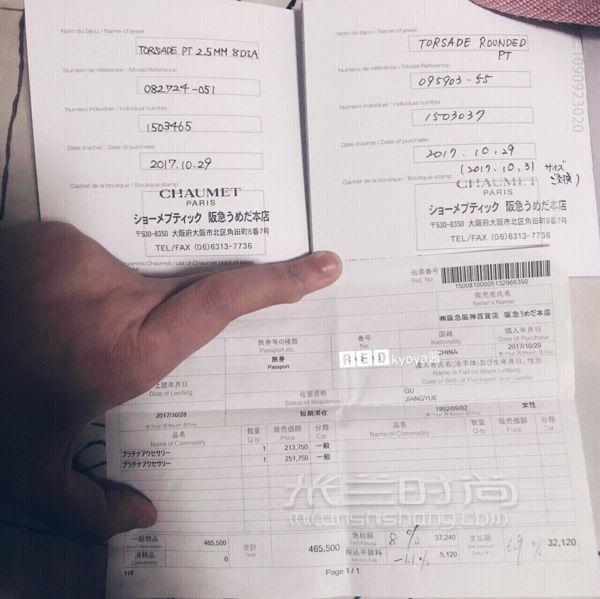 Nom du bijou / Name of jewel
TORSADE PT 2.5MM 8DIA
Numéro de référence / Model Reference
082724-051
Numéro individuel / Individual number
1503465
Date d'achat / Date of purchase
2017.10.29
Cachet de la boutique / Boutique stamp
CHAUMET
PARIS
ショーメブティック 阪急うめだ本店
〒530-8350 大阪府大阪市北区角田町8番7号
TEL/FAX (06)6313-7736
Nom du bijou / Name of jewel
TORSADE ROUNDED
PT
Numéro de référence / Model Reference
095903-55
Numéro individuel / Individual number
1503037
Date d'achat / Date of purchase
2017.10.29
(2017.10.31 サイズ
ご交換)
Cachet de la boutique / Boutique stamp
CHAUMET
PARIS
ショーメブティック 阪急うめだ本店
〒530-8350 大阪府大阪市北区角田町8番7号
TEL/FAX (06)6313-7736
1090923020
Chaumet / List of Chaumet point of
伝票番号
Ref. No.
15008100051329663 50
販売者氏名
Seller's Name
㈱阪急阪神百貨店 阪急うめだ本店
旅券等の種類
Passport etc.
旅券
Passport
番号
No.
国籍
Nationality
CHINA
購入年月日
Date of Purchase
2017/10/29
RED kyoya酱
上陸年月日
Date of Landing
2017/10/28
在留資格
Status of Residence
短期滞在
購入者氏名(活字体)及び生年月日、性別
Name in Full (in Block Letters)
Date of Birth of Purchaser and Gender
GU
JIANGYUE
1992/09/02
女性
品名
Name of Commodity
数量
Q-ty
販売価額
Price
分類
Cat.
品名
Name of Commodity
数量
Q-ty
販売価額
Price
分類
Cat.
プラチナアクセサリー 1 213,750 一般
プラチナアクセサリー 1 251,750 一般
米兰时尚
一般物品 465,500
消耗品 0
合計
Total
465,500
免税額 8% 37,240
税込手数料 -1.1% 5,120
支払額 6.9% 32,120
118
Page 1 / 1